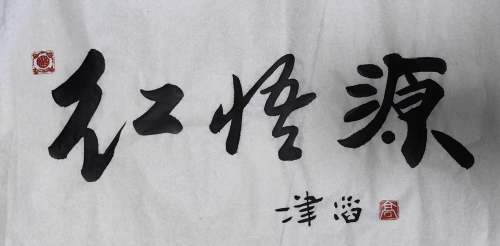 红悟源
津滔